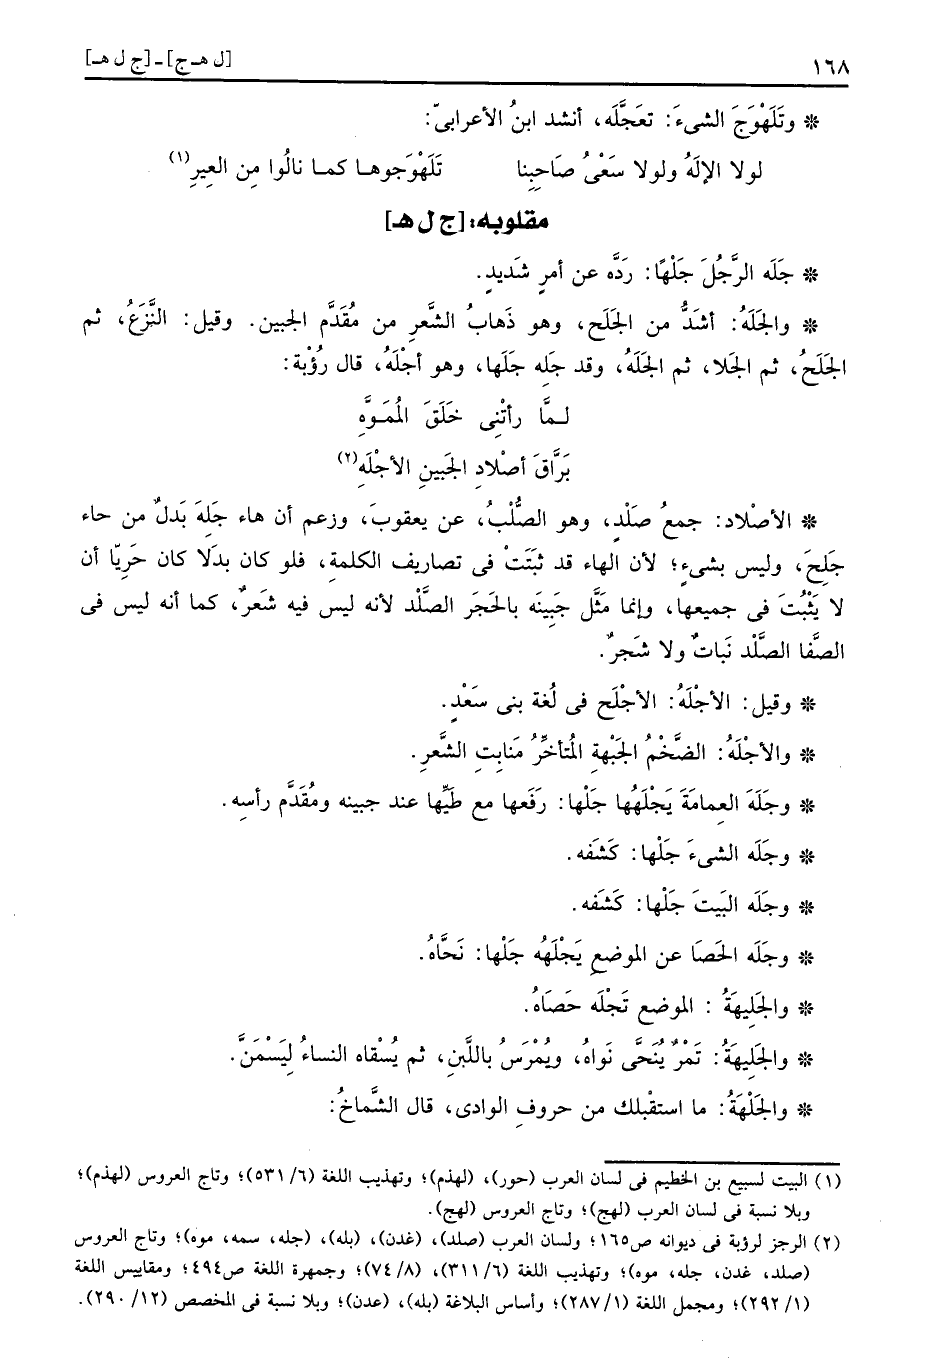 ١٦٨ [ل هـ ج] - [ج ل هـ]
* وتَلَهْوَجَ الشىءَ: تعَجَّلَه، أنشد ابنُ الأعرابىّ:
لولا الإلَهُ ولولا سَعْىُ صَاحِبِنا تَلَهْوَجوهـا كمـا نالُوا مِن العِيرِ(١)
مقلوبه: [ج ل هـ]
* جَلَه الرَّجُلَ جَلْهًا: رَدَّه عن أمرٍ شَديدٍ.
* والجَلَهُ: أشَدُّ من الجَلَح، وهو ذَهابُ الشَّعرِ من مُقَدَّم الجبين. وقيل: النَّزَعُ، ثم
الجَلَحُ، ثم الجَلا، ثم الجَلَهُ، وقد جَلِه جَلَها، وهو أجْلَهُ، قال رُؤْبة:
لـمَّا رأتْنِى خَلَقَ المُمَـوَّهِ
بَرَّاقَ أصْلادِ الجَبينِ الأجْلَهِ(٢)
* الأصْلاد: جمعُ صَلْدٍ، وهو الصُّلْبُ، عن يعقوبَ، وزعم أن هاء جَلِهَ بَدلٌ من حاء
جَلِحَ، وليس بشىءٍ؛ لأن الهاء قد ثَبَتَتْ فى تصاريف الكلمةِ، فلو كان بدَلا كان حَرِيّا أن
لا يَثْبُتَ فى جميعها، وإنما مَثَّل جَبِينَه بالحَجَر الصَّلْد لأنه ليس فيه شعَرٌ، كما أنه ليس فى
الصَّفا الصَّلْد نَباتٌ ولا شَجرٌ.
* وقيل: الأجْلَهُ: الأجْلَح فى لُغة بنى سَعْدٍ.
* والأجْلَهُ: الضَّخْمُ الجَبْهةِ المُتأخِّرُ مَنابِتِ الشَّعرِ.
* وجَلَهَ العِمامَةَ يَجْلَهُها جَلْها: رَفَعها مع طَيِّها عند جبينه ومُقَدَّم رأسِه.
* وجَلَه الشىءَ جَلْها: كَشَفه.
* وجَلَه البَيتَ جَلْها: كَشَفه.
* وجَلَه الحَصَا عن الموضعِ يَجْلَهُه جَلْها: نَحَّاهُ.
* والجَلِيهَةُ : الموضع تَجْلَه حَصَاهُ.
* والجَلِيهَةُ: تَمْرٌ يُنَحَّى نَواهُ، ويُمْرَسُ باللَّبنِ، ثم يُسْقاه النساءُ لِيَسْمَنَّ.
* والجَلْهَةُ: ما استقْبلك من حروفِ الوادى، قال الشَّماخُ:
(١) البيت لسبيع بن الخطيم فى لسان العرب (حور)، (لهذم)؛ وتهذيب اللغة (٦/ ٥٣١)؛ وتاج العروس (لهذم)؛
وبلا نسبة فى لسان العرب (لهج)؛ وتاج العروس (لهج).
(٢) الرجز لرؤبة فى ديوانه ص١٦٥؛ ولسان العرب (صلد)، (غدن)، (بله)، (جله، سمه، موه)؛ وتاج العروس
(صلد، غدن، جله، موه)؛ وتهذيب اللغة (٦/ ٣١١)، (٨/ ٧٤)؛ وجمهرة اللغة ص٤٩٤؛ ومقاييس اللغة
(١/ ٢٩٢)؛ ومجمل اللغة (١/ ٢٨٧)؛ وأساس البلاغة (بله)، (عدن)؛ وبلا نسبة فى المخصص (١٢/ ٢٩٠).